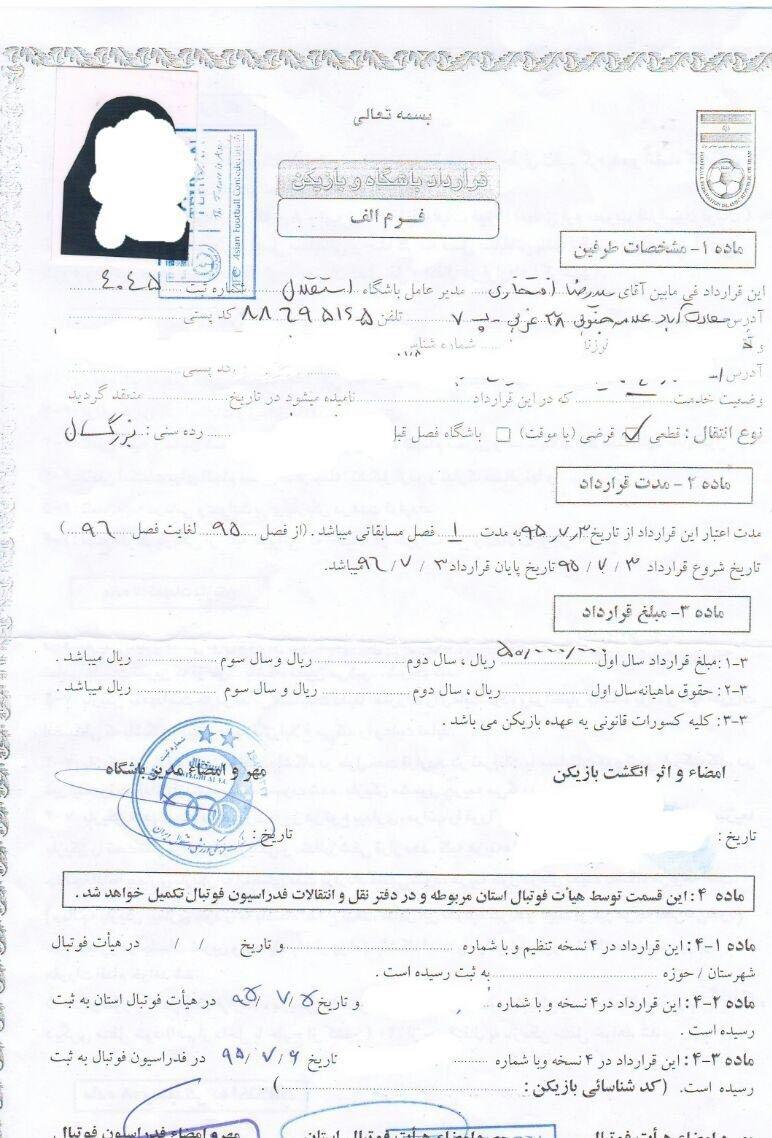 بسمه تعالی
قرارداد باشگاه و بازیکن
فرم الف
ماده ۱- مشخصات طرفین
این قرارداد فی مابین آقای سیدرضا افتخاری مدیر عامل باشگاه استقلال شماره ثبت ۴۰۴۵
آدرس سعادت آباد علامه جنوبی ۳۸ غربی پ ۷ تلفن ۸۸۶۹۵۱۶۵ کد پستی
شماره شناس
آدرس کد پستی
وضعیت خدمت که در این قرارداد نامیده میشود در تاریخ منعقد گردید
نوع انتقال : قطعی قرضی (یا موقت) باشگاه فصل قبل رده سنی : بزرگسال
ماده ۲- مدت قرارداد
مدت اعتبار این قرارداد از تاریخ ۹۵/۷/۳ به مدت ۱ فصل مسابقاتی میباشد . (از فصل ۹۵ لغایت فصل ۹۶ )
تاریخ شروع قرارداد ۹۵/۷/۳ تاریخ پایان قرارداد ۹۶/۷/۳ میباشد.
ماده ۳- مبلغ قرارداد
۳-۱: مبلغ قرارداد سال اول ۵۰/۰۰۰/۰۰۰ ریال ، سال دوم ریال و سال سوم ریال میباشد .
۳-۲: حقوق ماهیانه سال اول ریال، سال دوم ریال و سال سوم ریال میباشد .
۳-۳: کلیه کسورات قانونی به عهده بازیکن می باشد .
امضاء و اثر انگشت بازیکن مهر و امضاء مدیر باشگاه
تاریخ : تاریخ :
ماده ۴ : این قسمت توسط هیأت فوتبال استان مربوطه و در دفتر نقل و انتقالات فدراسیون فوتبال تکمیل خواهد شد .
ماده ۱-۴ : این قرارداد در ۴ نسخه تنظیم و با شماره و تاریخ / / در هیأت فوتبال
شهرستان / حوزه به ثبت رسیده است .
ماده ۲-۴ : این قرارداد در۴ نسخه و با شماره و تاریخ ۹۵/۷/۵ در هیأت فوتبال استان به ثبت
رسیده است .
ماده ۳-۴ : این قرارداد در ۴ نسخه وبا شماره تاریخ ۹۵/۷/۶ در فدراسیون فوتبال به ثبت
رسیده است. (کد شناسائی بازیکن : )
مهر و امضاء هیأت فوتبال مهر و امضاء هیأت فوتبال استان مهر و امضاء فدراسیون فوتبال